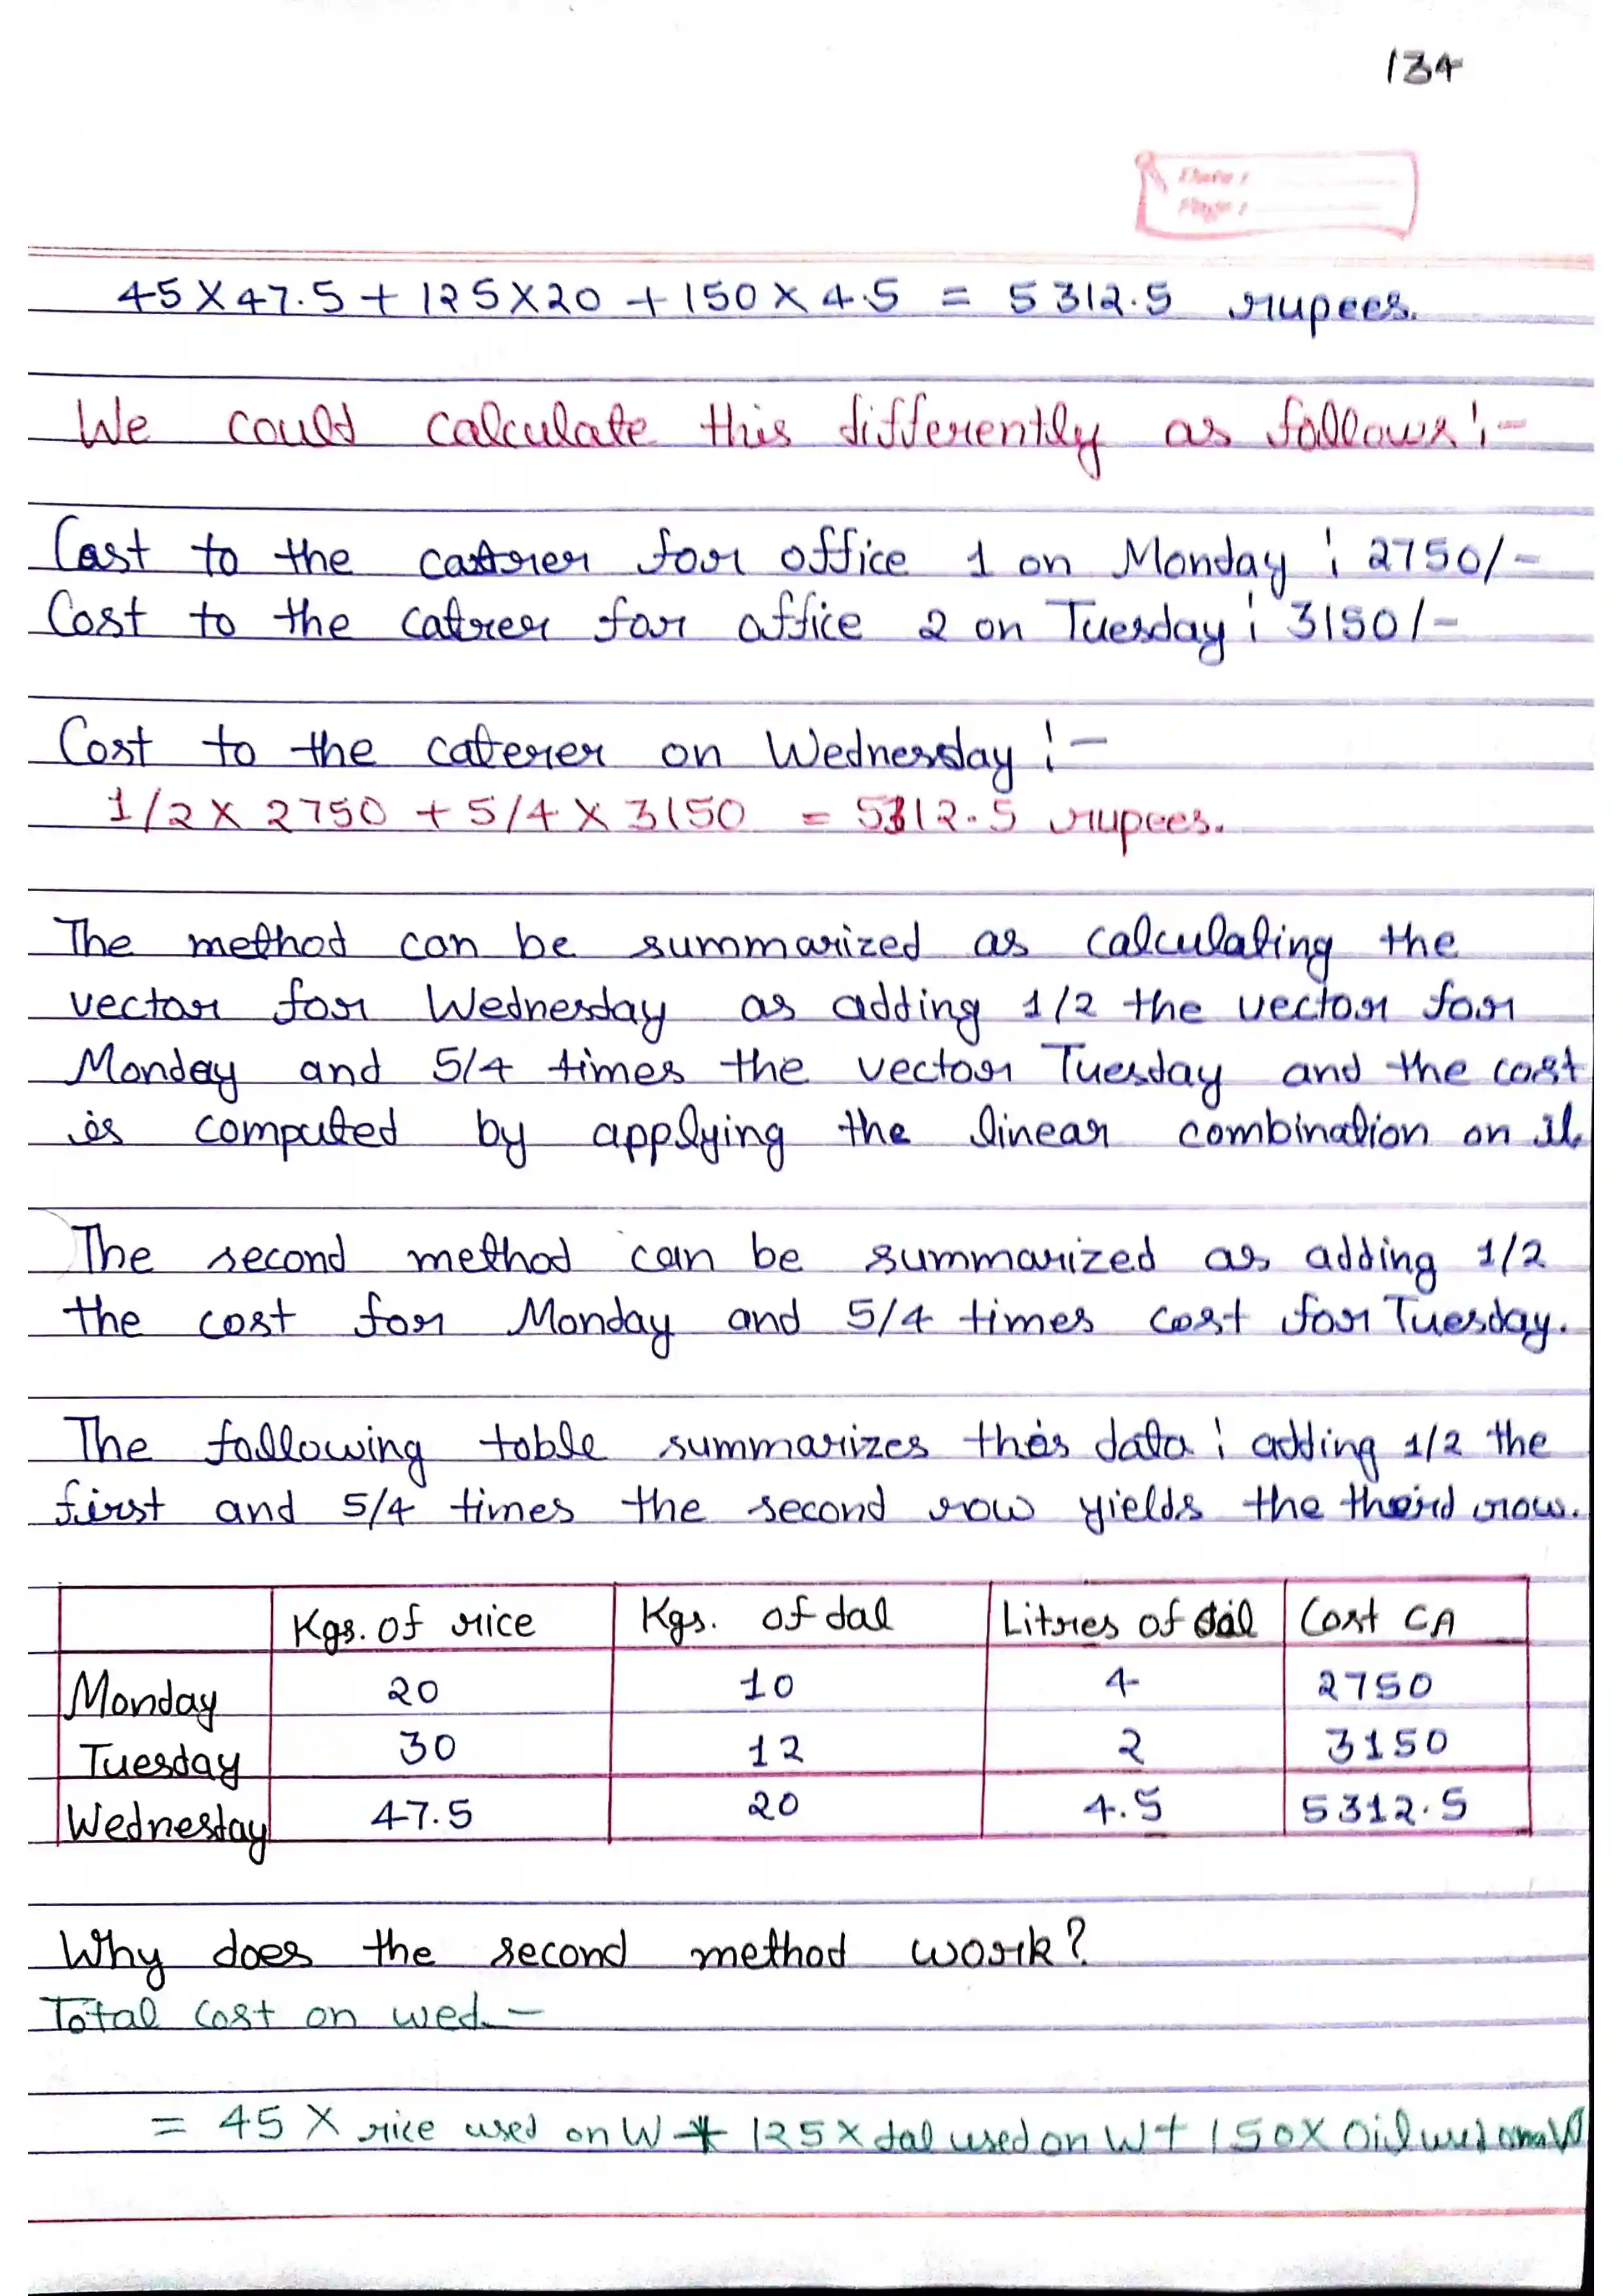 134
Date :
Page :
45 X 47.5 + 125 X 20 + 150 X 4.5 = 5312.5 rupees.
We could calculate this differently as follows :-
Cost to the caterer for office 1 on Monday : 2750/-
Cost to the catrer for office 2 on Tuesday : 3150/-
Cost to the caterer on Wednesday :-
1/2 X 2750 + 5/4 X 3150 = 5312.5 rupees.
The method can be summarized as calculating the
vector for Wednesday as adding 1/2 the vector for
Monday and 5/4 times the vector Tuesday and the cost
is computed by applying the linear combination on it
The second method can be summarized as adding 1/2
the cost for Monday and 5/4 times cost for Tuesday.
The following table summarizes this data : adding 1/2 the
first and 5/4 times the second row yields the third row.
Kgs. of rice Kgs. of dal Litres of oil Cost CA
Monday 20 10 4 2750
Tuesday 30 12 2 3150
Wednesday 47.5 20 4.5 5312.5
Why does the second method work?
Total Cost on wed. -
= 45 X rice used on W + 125 X dal used on W + 150 X Oil used on W